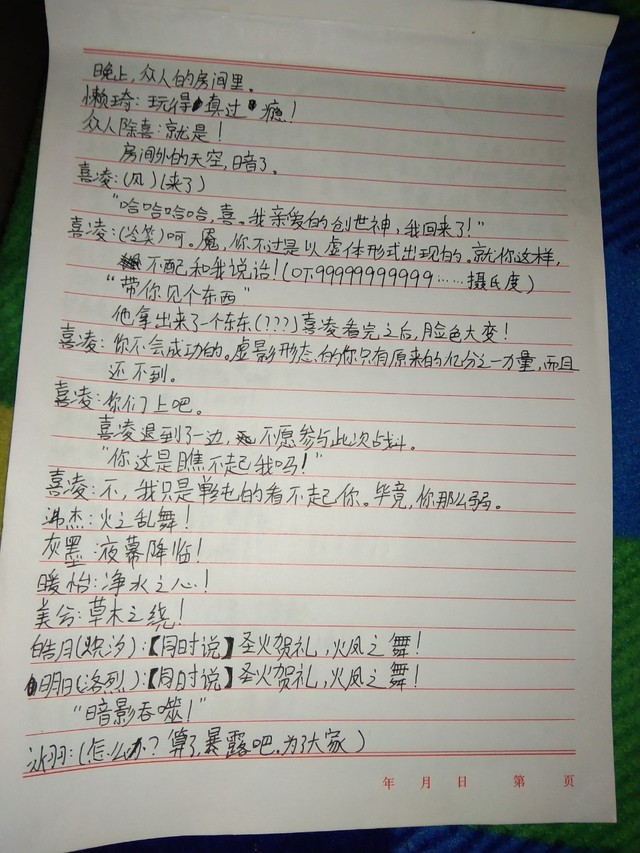 晚上，众人的房间里。
懒琦：玩得真过瘾！
众人除喜：就是！
房间外的天空，暗了。
喜凌：(风)(来了)
“哈哈哈哈，喜。我亲爱的创世神，我回来了！”
喜凌：(冷笑)呵。魇，你不过是以虚体形式出现的。就你这样，
不配和我说话！(0下99999999999……摄氏度)
“带你见个东西”
他拿出来了一个东东(???)喜凌看完之后，脸色大变！
喜凌：你不会成功的。虚影形态的你只有原来的亿分之一力量，而且
还不到。
喜凌：你们上吧。
喜凌退到了一边，不愿参与此次战斗。
“你这是瞧不起我吗！”
喜凌：不，我只是单纯的看不起你。毕竟，你那么弱。
沸杰：火之乱舞！
灰墨：夜幕降临！
暖怡：净水之心！
美兮：草木之绕！
皓月(欢汐)：【同时说】圣火贺礼，火凤之舞！
明日(洛烈)：【同时说】圣火贺礼，火凤之舞！
“暗影吞噬！”
冰羽：(怎么办？算了，暴露吧。为了大家)
年 月 日 第 页